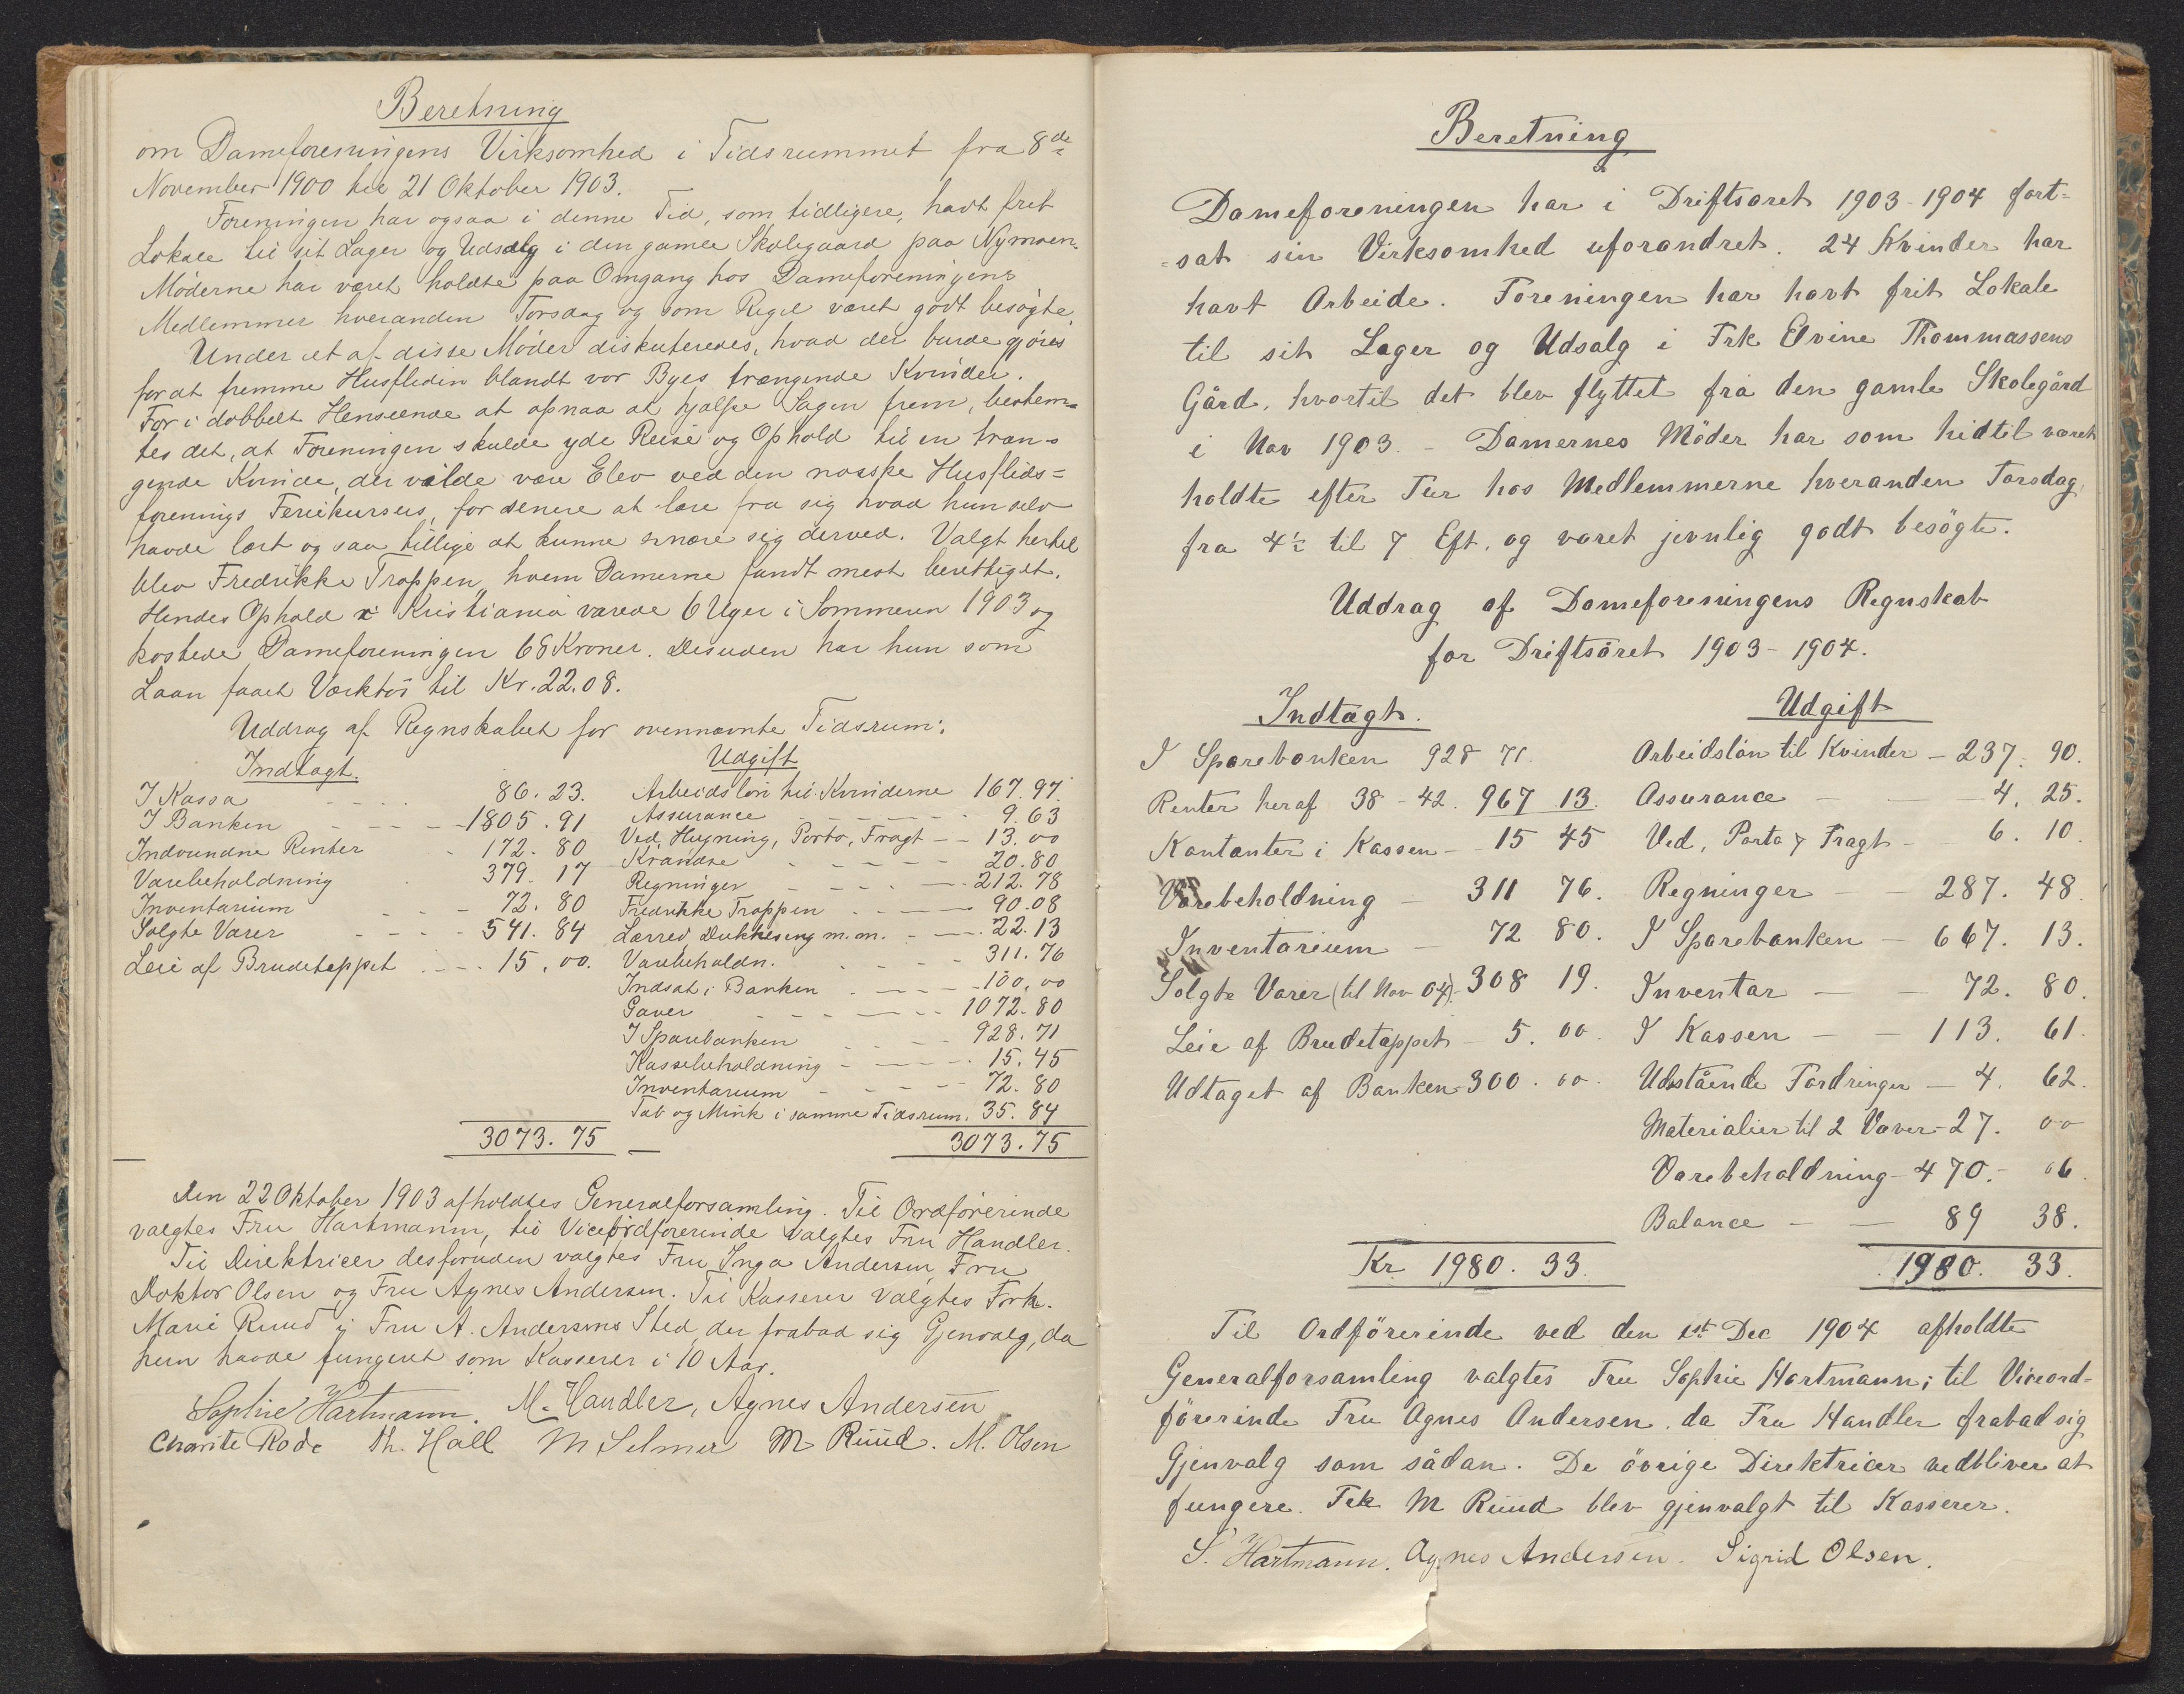 Beretning
om Dameforeningens Virksomhed i Tidsrummet fra 8de
November 1900 til 21 Oktober 1903.
Foreningen har ogsaa i denne Tid, som tidligere, havt frit
Lokale til sit Lager og Udsalg i den gamle Skolegaard paa Nymoen.
Møderne har været holdte paa Omgang hos Dameforeningens
Medlemmer hveranden Torsdag og som Regel været godt besøgte.
Under et af disse Møder diskuteredes, hvad der burde gjøres
for at fremme Husfliden blandt vor Byes trængende Kvinder.
For i dobbelt Henseende at opnaa at hjælpe Sagen frem, bestem=
tes det, at Foreningen skulde yde Reise og Ophold til en træn=
gende Kvinde, der vilde være Elev ved den norske Husflids=
forenings Feriekursus, for senere at lære fra sig hvad hun selv
havde lært og saa tillige at kunne ernære sig derved. Valgt hertil
blev Fredrikke Troppen, hvem Damerne fandt mest berettiget.
Hendes Ophold i Kristiania varede 6 Uger i Sommeren 1903 og
kostede Dameforeningen 68 Kroner. Desuden har hun som
Laan faaet Værktøi til Kr. 22.08.
Uddrag af Regnskabet for ovennævnte Tidsrum:
Indtægt.
I Kassa - - - - 86. 23.
I Banken - - - - 1805. 91
Indvundne Renter - 172. 80
Varebeholdning . 379. 17
Inventarium - - - 72. 80
Solgte Varer - - - - 541. 84
Leie af Brudetæppet - - - 15. 00.
3073. 75
Udgift
Arbeidsløn til Kvinderne 167. 97.
Assurance - - - - - - 9. 63
Ved, Hugning, Porto, Fragt - - 13. 00
Krandse - - - - - 20. 80
Regninger - - - - - 212. 78
Fredrikke Troppen - - - - 90. 08
Lærred, Dukkeseng m. m. - - - 22. 13
Varebeholdn. - - - - 311. 76
Indsat i Banken - - - - 100. 00
Gaver - - - - - - 1072. 80
I Sparebanken - - - 928. 71
Kassebeholdning - - - - 15. 45
Inventarium - - - - - 72. 80
Tab og Mink i samme Tidsrum. 35. 84
3073. 75
Den 22 Oktober 1903 afholdtes Generalforsamling. Til Ordførerinde
valgtes Fru Hartmann, til Viceordførerinde valgtes Fru Handler.
Til Direktricer desforuden valgtes Fru Inga Andersen, Fru
Doktor Olsen og Fru Agnes Andersen. Til Kasserer valgtes Frk.
Marie Ruud i Fru A. Andersens Sted, der frabad sig Gjenvalg, da
hun havde fungeret som Kasserer i 10 Aar.
Sophie Hartmann. M. Handler, Agnes Andersen
Charite Rode Th. Hall M Selmer M Ruud. M. Olsen
Beretning
Dameforeningen har i Driftsåret 1903-1904 fort=
=sat sin Virksomhed uforandret. 24 Kvinder har
havt Arbeide. Foreningen har havt frit Lokale
til sit Lager og Udsalg i Frk Elvine Thommassens
Gård, hvortil det blev flyttet fra den gamle Skolegård
i Nov 1903. - Damernes Möder har som hidtil været
holdte efter Tur hos Medlemmerne hveranden Torsdag,
fra 4½ til 7 Eft. og været jevnlig godt besögte.
Uddrag af Dameforeningens Regnskab
for Driftsåret 1903-1904.
Indtægt.
I Sparebanken 928 71.
Renter heraf 38-42. 967 13.
Kontanter i Kassen - 15 45
Varebeholdning - 311 76.
Inventarium - 72 80.
Solgte Varer (til Nov 04) - 308 19.
Leie af Brudetæppet - 5. 00.
Udtaget af Banken - 300. 00.
Kr 1980. 33.
Udgift
Arbeidslön til Kvinder - 237. 90.
Assurance - - 4. 25.
Ved, Porto & Fragt - 6. 10
Regninger - - 287. 48
I Sparebanken - 667. 13.
Inventar - - 72. 80.
I Kassen - - 113. 61.
Udstående Fordringer - 4. 62.
Materialier til 2 Væver - 27. 00
Varebeholdning - 470. - 06.
Balance - - 89 38.
1980. 33.
Til Ordförerinde ved den 1st Dec 1904 afholdte
Generalforsamling valgtes Fru Sophie Hartmann; til Viceord-
förerinde Fru Agnes Andersen, da Fru Handler frabad sig
Gjenvalg som sådan. De övrige Direktricer vedbliver at
fungere. Frk M Ruud blev gjenvalgt til Kasserer.
S. Hartmann. Agnes Andersen. Sigrid Olsen.